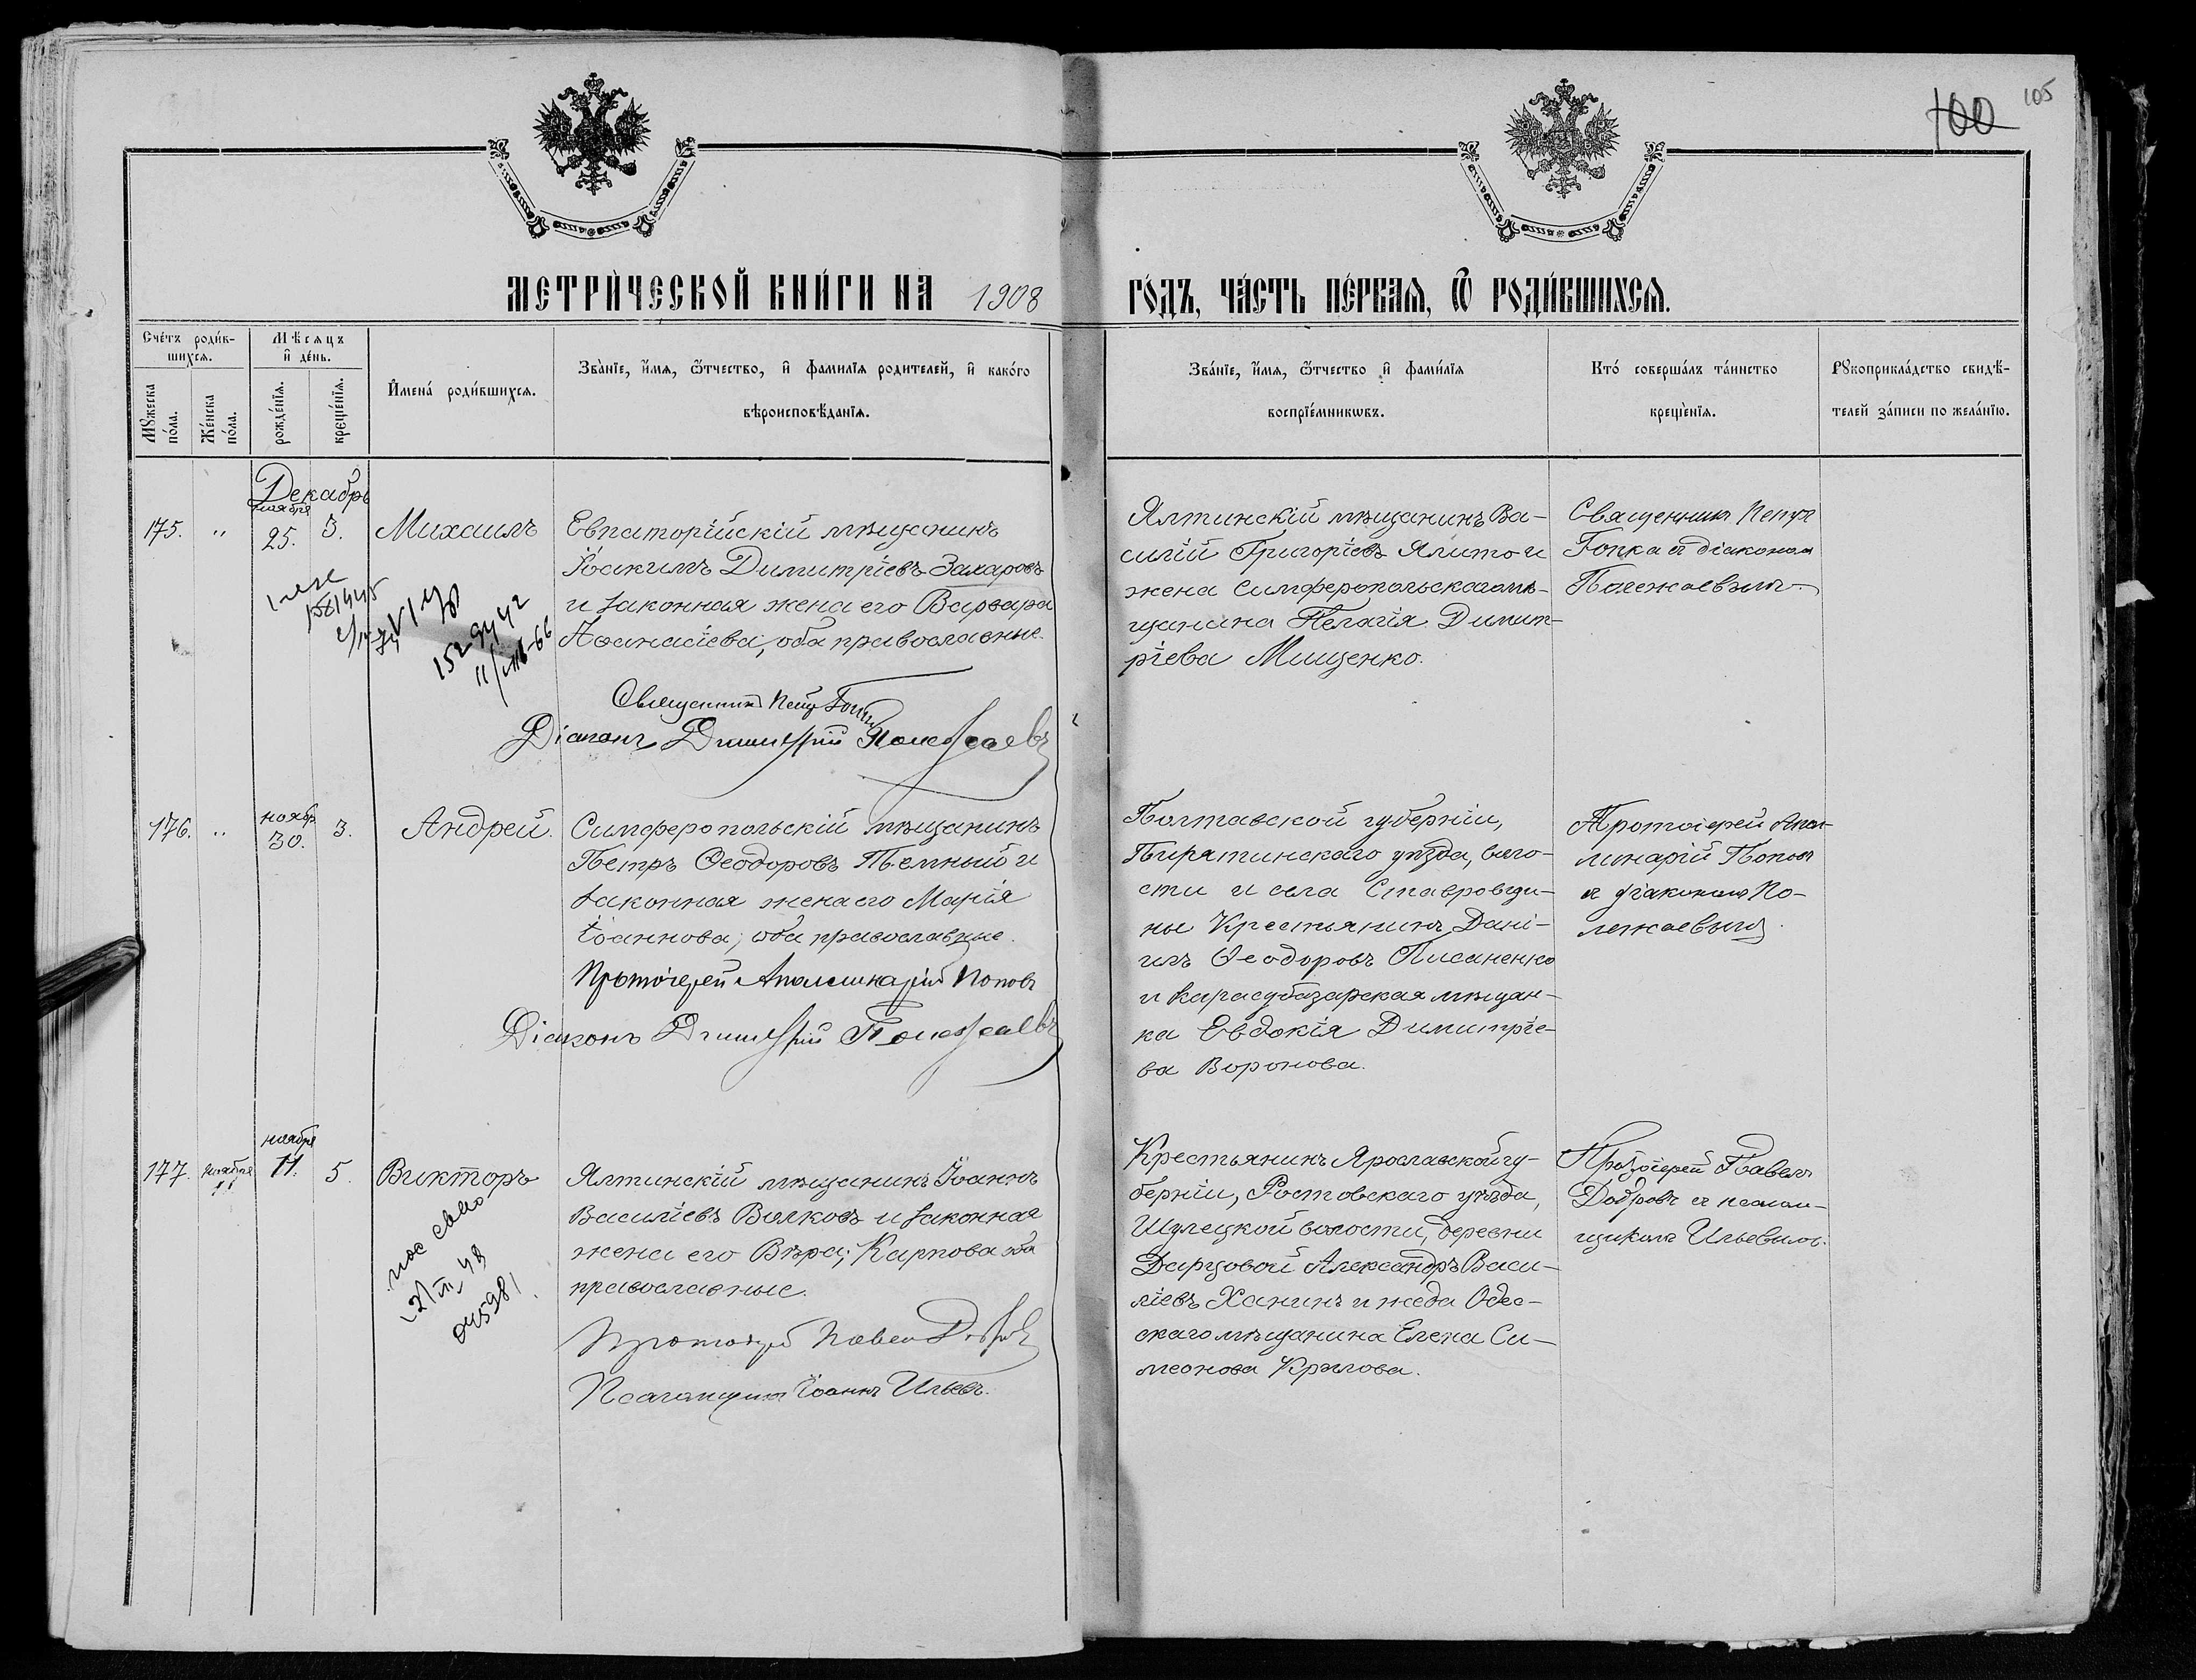 100
105
МЕТРИ́ЧЕСКОЙ КНИ́ГИ НА 1908 ГО́ДЪ, ЧА́СТЬ ПЕ́РВАЯ, Ѿ РОДИ́ВШИХСЯ.
Сче́тъ роди́в-
шихся.
Му́жеска по́ла.
Же́нска по́ла.
Мѣсяцъ
и де́нь.
рожде́нїя.
креще́нїя.
Имена́ роди́вшихся.
Зва́нїе, и́мя, ѻ́тчество, и фами́лїя родителей, и како́го
вѣроисповѣ́данїя.
Зва́нїе, и́мя, ѻ́тчество и фами́лїя
воспрїе́мникѡвъ.
Кто́ соверша́лъ та́инство
креще́нїя.
Рꙋкоприкла́дство свидѣ́-
телей за́писи по жела́нїю.
Декабрь
175. " ноября 25. 3. Михаилъ
Евпаторійскій мѣщанинъ
Іоакимъ Димитріевъ Захаровъ
и законная жена его Варвара
Аѳанасіева, оба православные.
Священникъ Петръ Гопка
Діаконъ Димитрій Полежаевъ
Ялтинскій мѣщанинъ Ва-
силій Григоріевъ и
жена Симферопольскаго мѣ-
щанина Пелагія Димит-
ріева Мищенко.
Священникъ Петръ
Гопка съ діакономъ
Полежаевымъ.
1529442
11/VIII-66
176. " ноябр. 30. 3. Андрей.
Симферопольскій мѣщанинъ
Петръ Ѳеодоровъ Темный и
законная жена его Марія
Іоаннова, оба православные.
Протоіерей Аполлинарій Поповъ
Діаконъ Димитрій Полежаевъ
Полтавской губерніи,
Пирятинскаго уѣзда, воло-
сти и села
ны Крестьянинъ Дані-
илъ Ѳеодоровъ Писаненко
и Карасубазарская мѣщан-
ка Евдокія Димитріе-
ва Воронова.
Протоіерей Апол-
линарій Поповъ
съ діакономъ По-
лежаевымъ.
177. ноября 11 ноября 11. 5. Викторъ
Ялтинскій мѣщанинъ Іоаннъ
Василіевъ Волковъ и законная
жена его Вѣра Карпова оба
православные.
Протоіерей Павелъ Добровъ
Псаломщикъ Іоаннъ Ильевъ.
Крестьянинъ Ярославской гу-
берніи, Ростовскаго уѣзда,
Шулецкой волости, деревни
Дарцовой Александръ Васи-
ліевъ Ханинъ и жена Одес-
скаго мѣщанина Елена Си-
меонова Крылова.
Протоіерей Павелъ
Добровъ съ псалом-
щикомъ Ильевымъ.
045981